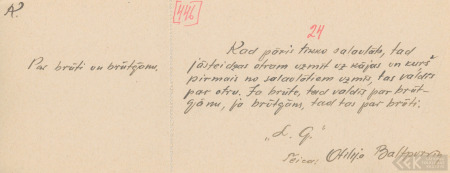 A.
[446]
24
Par brūti un brūtgānu.
Kad pāris tikko salaulāts, tad
jāsteidzas otram uzmīt uz kājas un kurš
pirmais no salaulātiem uzmīs, tas valdīs
par otru. Ja brūte, tad valdīs par brūt-
gānu, ja brūtgāns, tad tas par brūti.
„L. G."
Teicēja: Otilija